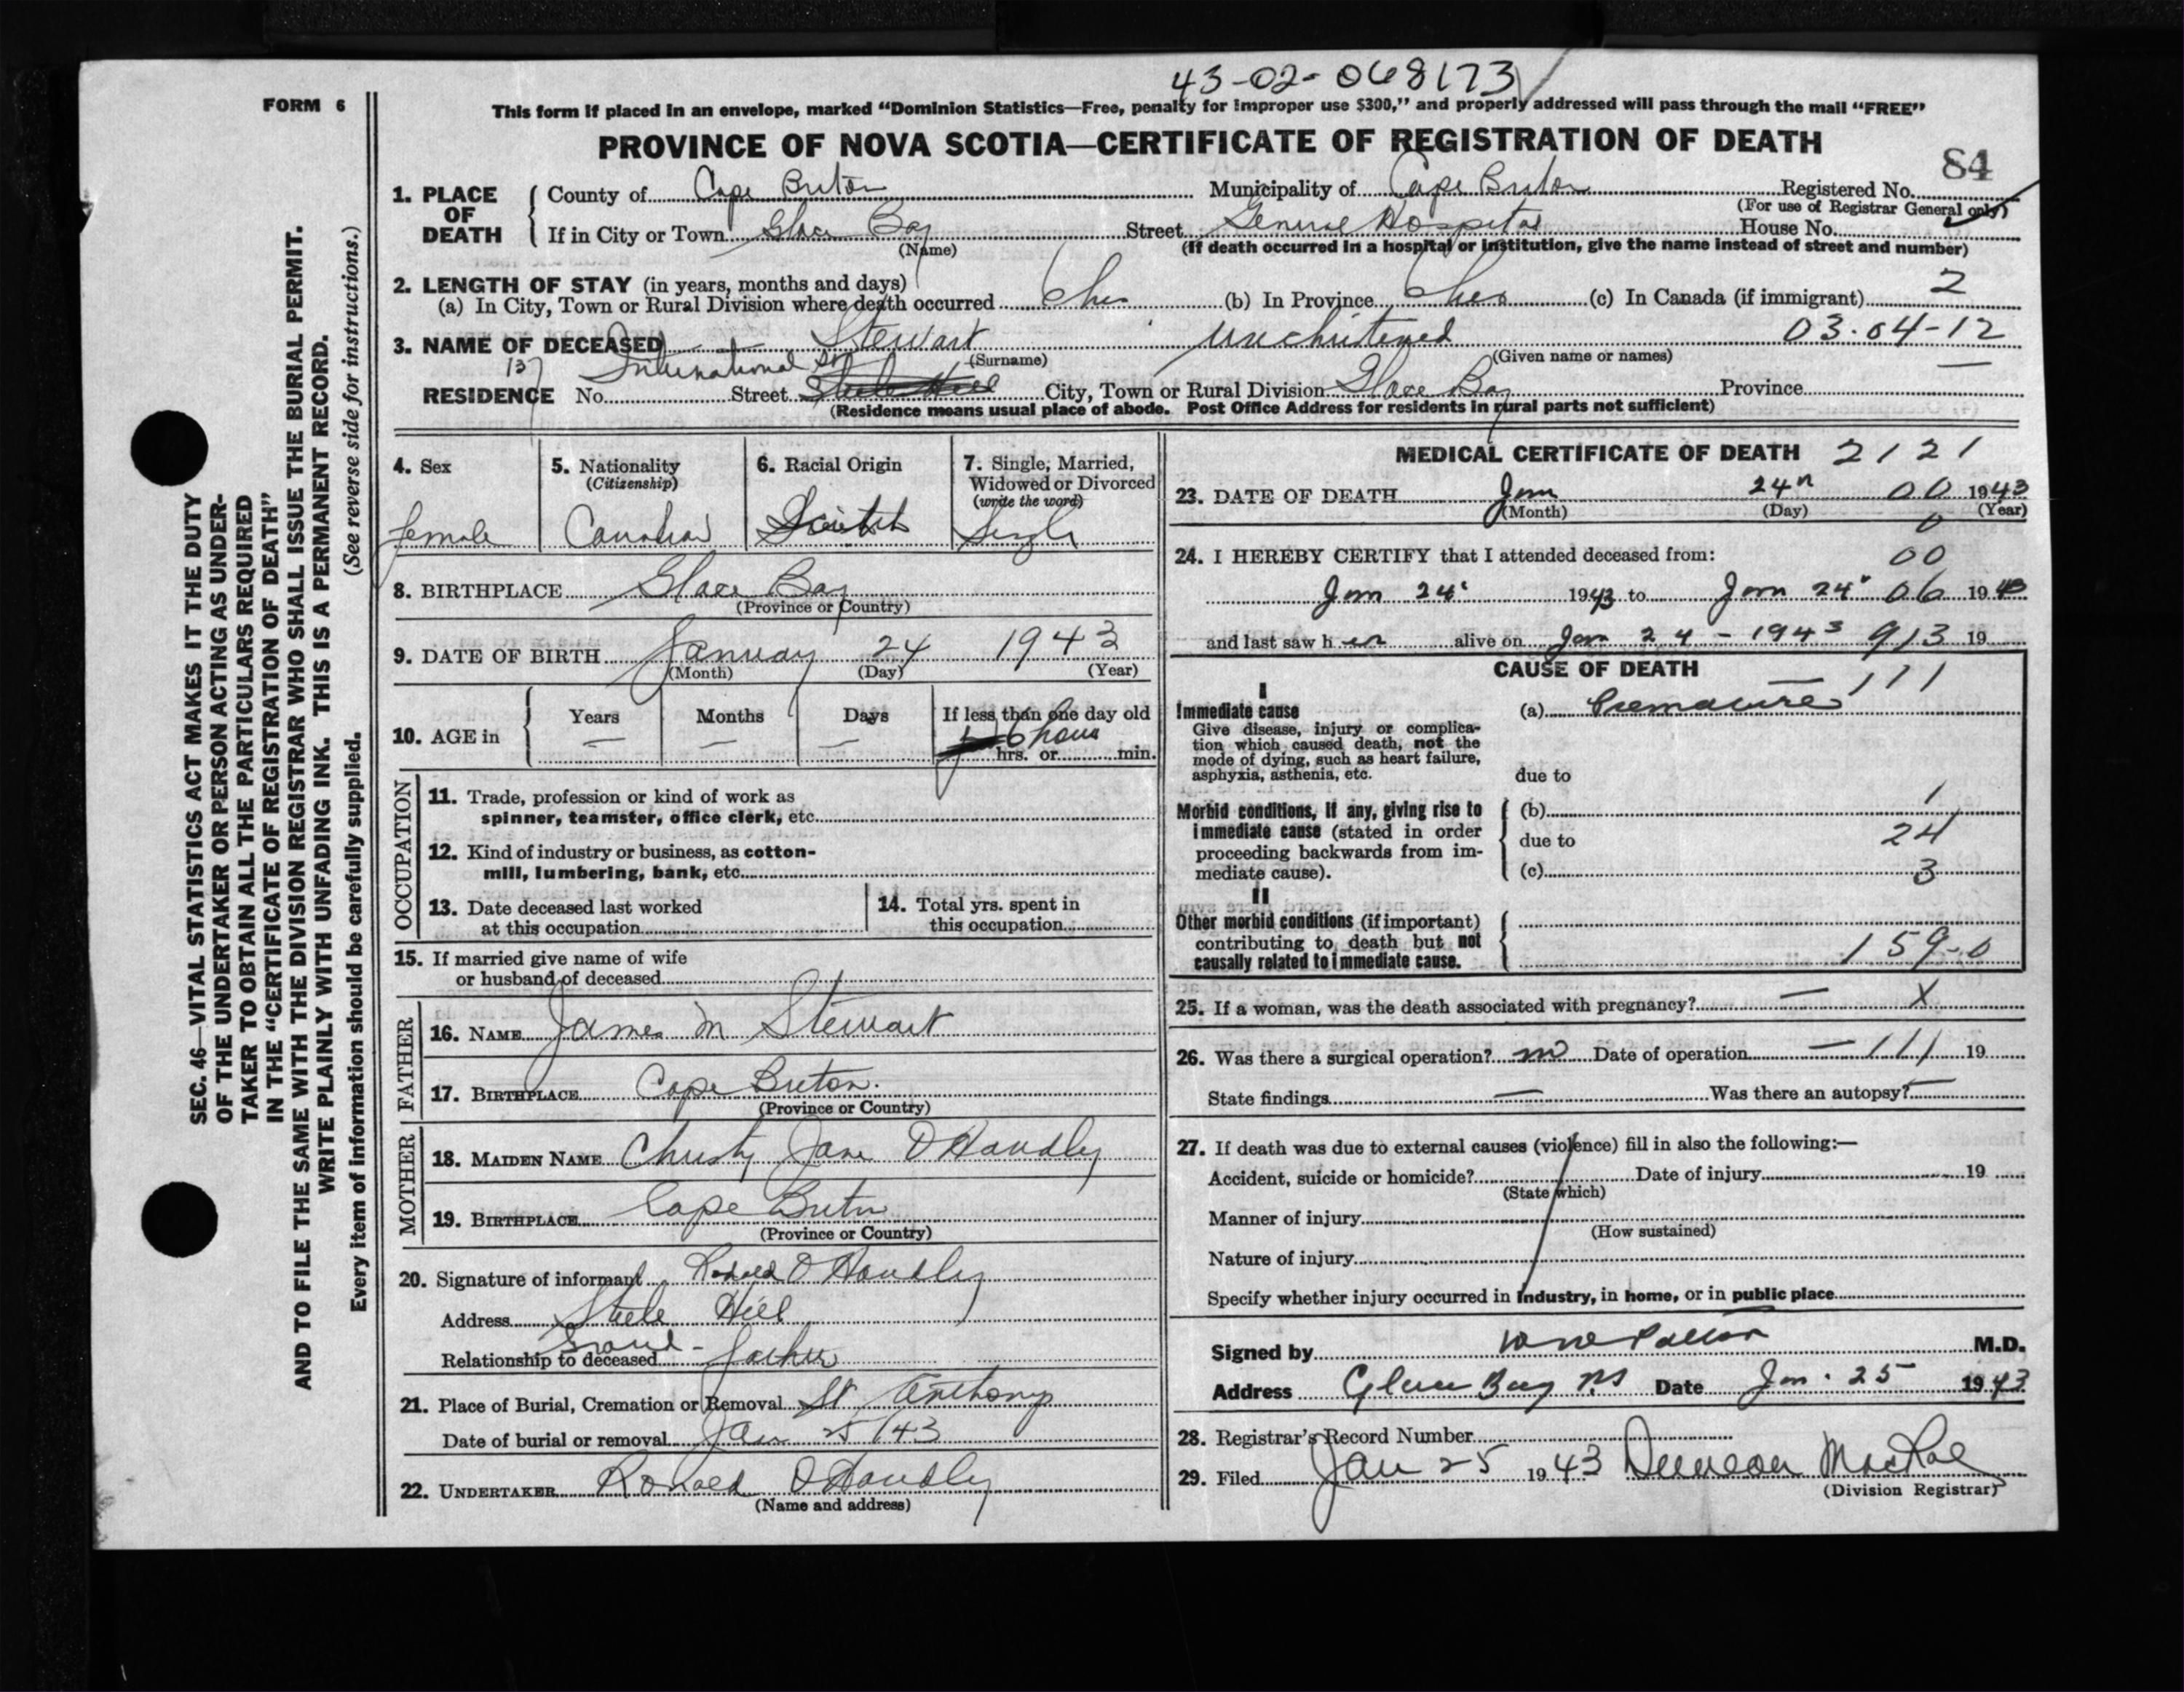 43-02-068173
FORM 6
This form if placed in an envelope, marked "Dominion Statistics—Free, penalty for improper use $300," and properly addressed will pass through the mail "FREE"
PROVINCE OF NOVA SCOTIA—CERTIFICATE OF REGISTRATION OF DEATH
84
1. PLACE OF DEATH
County of Cape Breton Municipality of Cape Breton Registered No.
(For use of Registrar General only)
If in City or Town Glace Bay Street General Hospital House No.
(Name) (If death occurred in a hospital or institution, give the name instead of street and number)
2. LENGTH OF STAY (in years, months and days)
(a) In City, Town or Rural Division where death occurred 6 hrs (b) In Province 6 hrs (c) In Canada (if immigrant) 2
3. NAME OF DECEASED Stewart unchristened 03-04-12
(Surname) (Given name or names)
137 International St
RESIDENCE No. Street Steele Hill City, Town or Rural Division Glace Bay Province —
(Residence means usual place of abode. Post Office Address for residents in rural parts not sufficient)
4. Sex
female
5. Nationality
(Citizenship)
Canadian
6. Racial Origin
Scotch
7. Single, Married,
Widowed or Divorced
(write the word)
Single
8. BIRTHPLACE Glace Bay
(Province or Country)
9. DATE OF BIRTH January 24 1943
(Month) (Day) (Year)
10. AGE in
Years —
Months —
Days —
If less than one day old
6 hours
hrs. or min.
OCCUPATION
11. Trade, profession or kind of work as
spinner, teamster, office clerk, etc.
12. Kind of industry or business, as cotton-
mill, lumbering, bank, etc.
13. Date deceased last worked
at this occupation
14. Total yrs. spent in
this occupation
15. If married give name of wife
or husband of deceased
FATHER
16. NAME James M Stewart
17. BIRTHPLACE Cape Breton.
(Province or Country)
MOTHER
18. MAIDEN NAME Christy Jane O'Handly
19. BIRTHPLACE Cape Breton
(Province or Country)
20. Signature of informant Ronald O'Handley
Address Steele Hill
Relationship to deceased Grand-father
21. Place of Burial, Cremation or Removal St Anthonys
Date of burial or removal Jan 25/43
22. UNDERTAKER Ronald O'Handly
(Name and address)
MEDICAL CERTIFICATE OF DEATH 2121
23. DATE OF DEATH Jan 24 00 1943
(Month) (Day) (Year)
0
24. I HEREBY CERTIFY that I attended deceased from: 00
Jan 24 1943 to Jan 24 06 1943
and last saw her alive on Jan 24-1943 913 19
CAUSE OF DEATH
111
I
Immediate cause
Give disease, injury or complica-
tion which caused death, not the
mode of dying, such as heart failure,
asphyxia, asthenia, etc.
(a) Premature
due to
Morbid conditions, if any, giving rise to
immediate cause (stated in order
proceeding backwards from im-
mediate cause).
(b) 1
due to 24
(c) 3
II
Other morbid conditions (if important)
contributing to death but not
causally related to immediate cause.
159-0
25. If a woman, was the death associated with pregnancy? — X
26. Was there a surgical operation? no Date of operation — 111 19
State findings — Was there an autopsy? —
27. If death was due to external causes (violence) fill in also the following:—
Accident, suicide or homicide? Date of injury 19
(State which)
Manner of injury
(How sustained)
Nature of injury
Specify whether injury occurred in industry, in home, or in public place
Signed by M.D.
Address Glace Bay NS Date Jan. 25 1943
28. Registrar's Record Number
29. Filed Jan 25 1943 Duncan MacRae
(Division Registrar)
SEC. 46—VITAL STATISTICS ACT MAKES IT THE DUTY
OF THE UNDERTAKER OR PERSON ACTING AS UNDER-
TAKER TO OBTAIN ALL THE PARTICULARS REQUIRED
IN THE "CERTIFICATE OF REGISTRATION OF DEATH"
AND TO FILE THE SAME WITH THE DIVISION REGISTRAR WHO SHALL ISSUE THE BURIAL PERMIT.
WRITE PLAINLY WITH UNFADING INK. THIS IS A PERMANENT RECORD.
Every item of information should be carefully supplied. (See reverse side for instructions.)